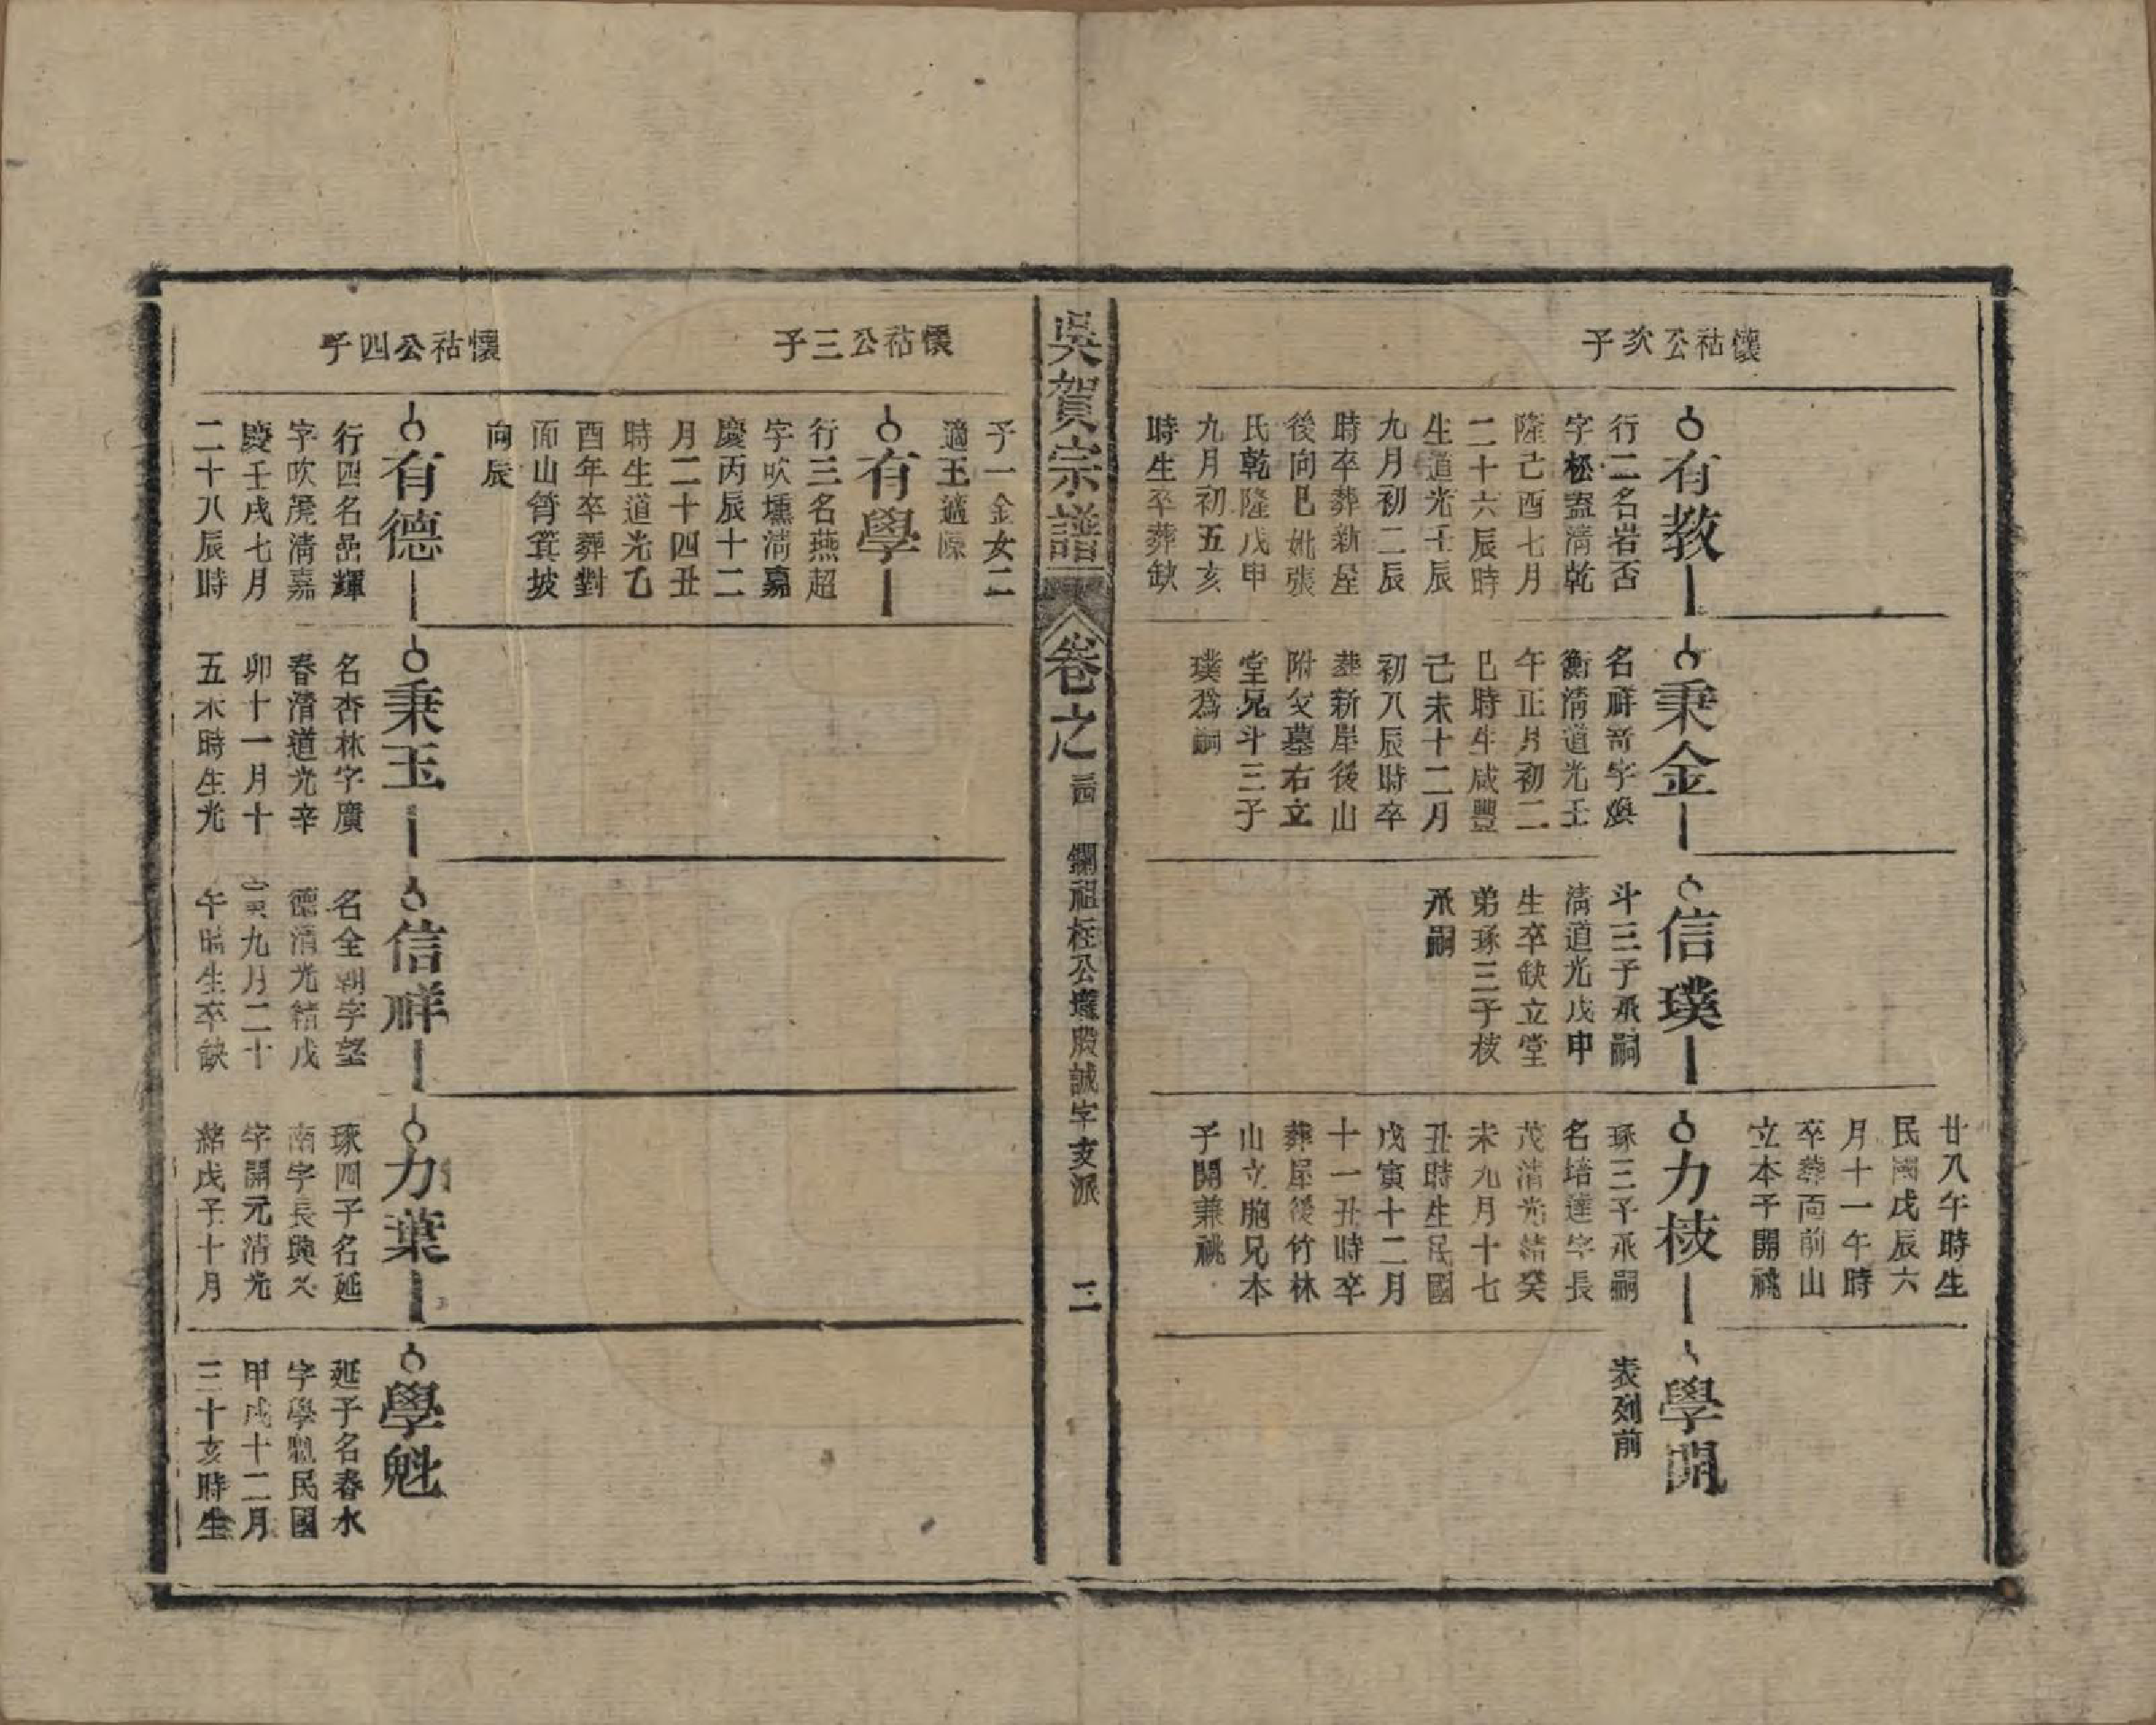 懷祜公次子
有教
行二名岩否
字松盛清乾
隆己酉七月
二十六辰時
生道光壬辰
九月初二辰
時卒葬新屋
後向巳妣張
氏乾隆戊申
九月初五亥
時生卒葬缺
秉金
名祥奇字煥
衡清道光壬
午正月初二
巳時生咸豐
己未十二月
初八辰時卒
葬新屋後山
附父墓右立
堂兄斗三子
璞為嗣
信璞
斗三子承嗣
清道光戊申
生卒缺立堂
弟琢三子枝
承嗣
廿八午時生
民國戊辰六
月十一午時
卒葬面前山
立本子開祧
力枝
琢三子承嗣
名培達字長
茂清光緒癸
未九月十七
丑時生民國
戊寅十二月
十一丑時卒
葬屋後竹林
山立胞兄本
子開兼祧
學開
表列前
吳賀宗譜
卷之
鐗祖柱公 股誠字支派
二
懷祜公三子
子一金女二
適王適
有學
行三名燕超
字吹壎清嘉
慶丙辰十二
月二十四丑
時生道光乙
酉年卒葬對
面山筲箕坡
向辰
懷祜公四子
有德
行四名 輝
字吹篪清嘉
慶壬戌七月
二十八辰時
秉玉
名杏林字廣
春清道光辛
卯十一月十
五未時生光
信祥
名全朝字望
德清光緒戊
寅九月二十
午時生卒缺
力葉
琢四子名延
南字長興又
字開元清光
緒戊子十月
學魁
延子名春水
字學魁民國
甲戌十二月
三十亥時生